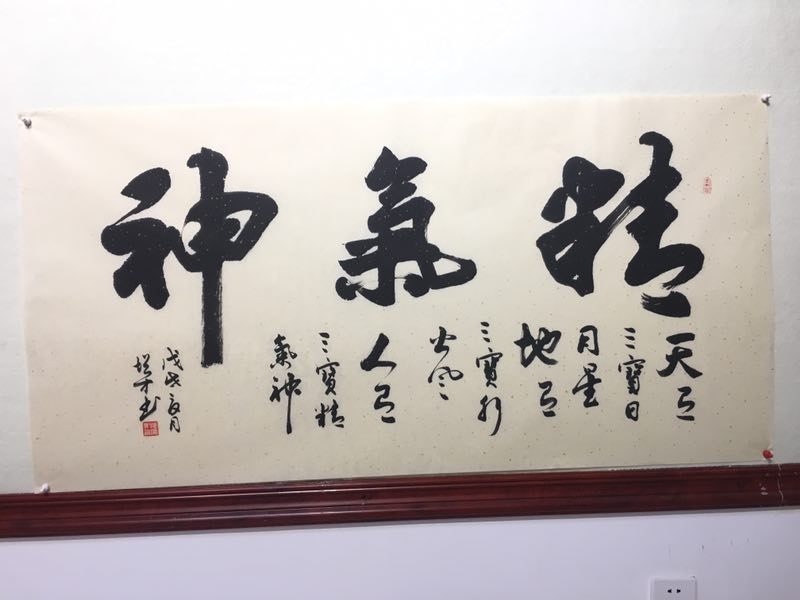 精氣神
天有
三寶日
月星
地有
三寶水
火風
人有
三寶精
氣神
戊戌夏月
书